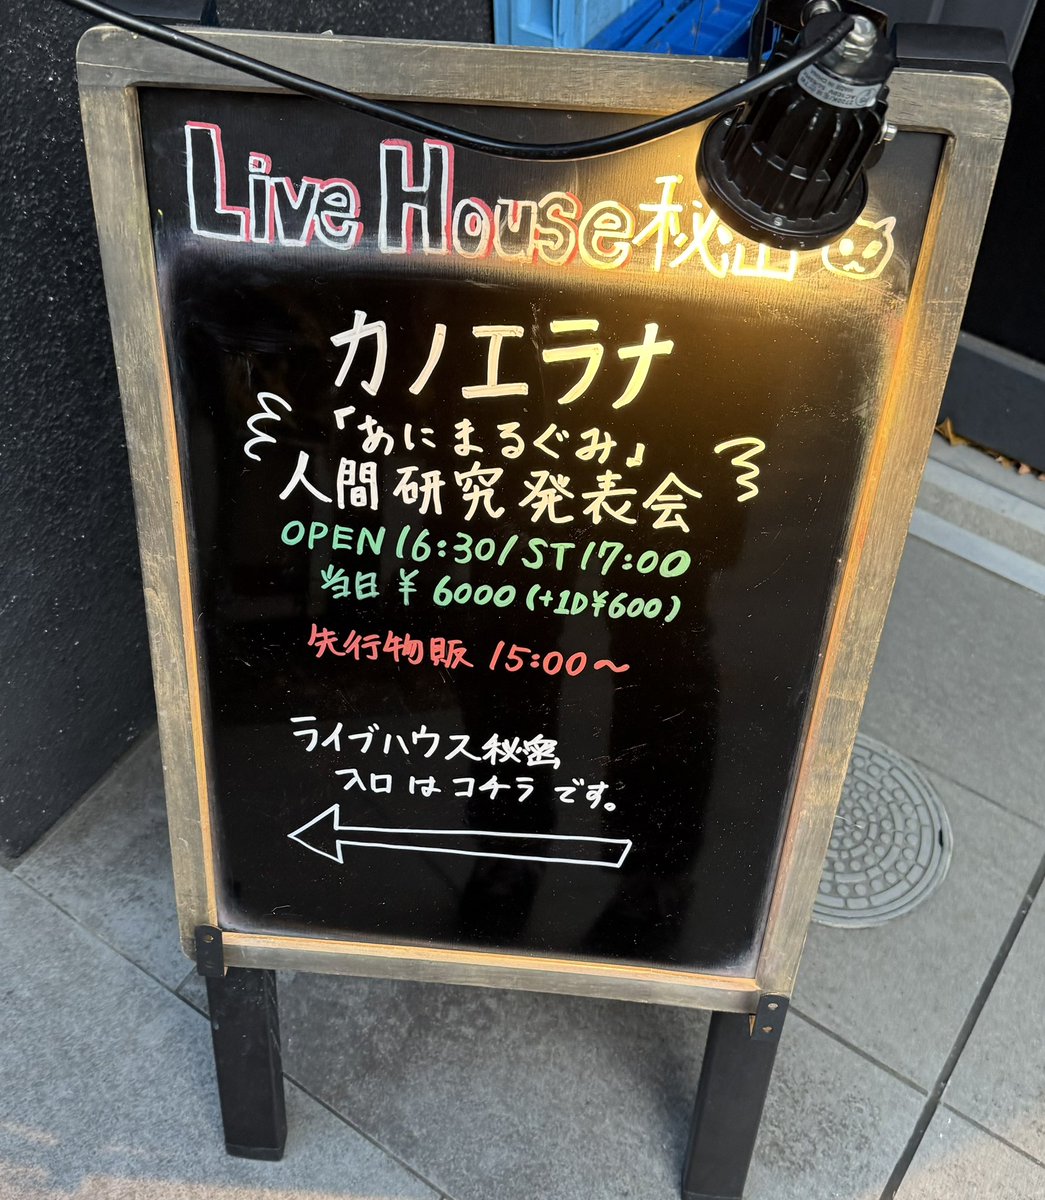 Live House 秘密
カノエラナ
「あにまるぐみ」
人間研究発表会
OPEN 16:30/ST 17:00
当日 ¥6000(+1D¥600)
先行物販 15:00〜
ライブハウス秘密
入口はコチラです。